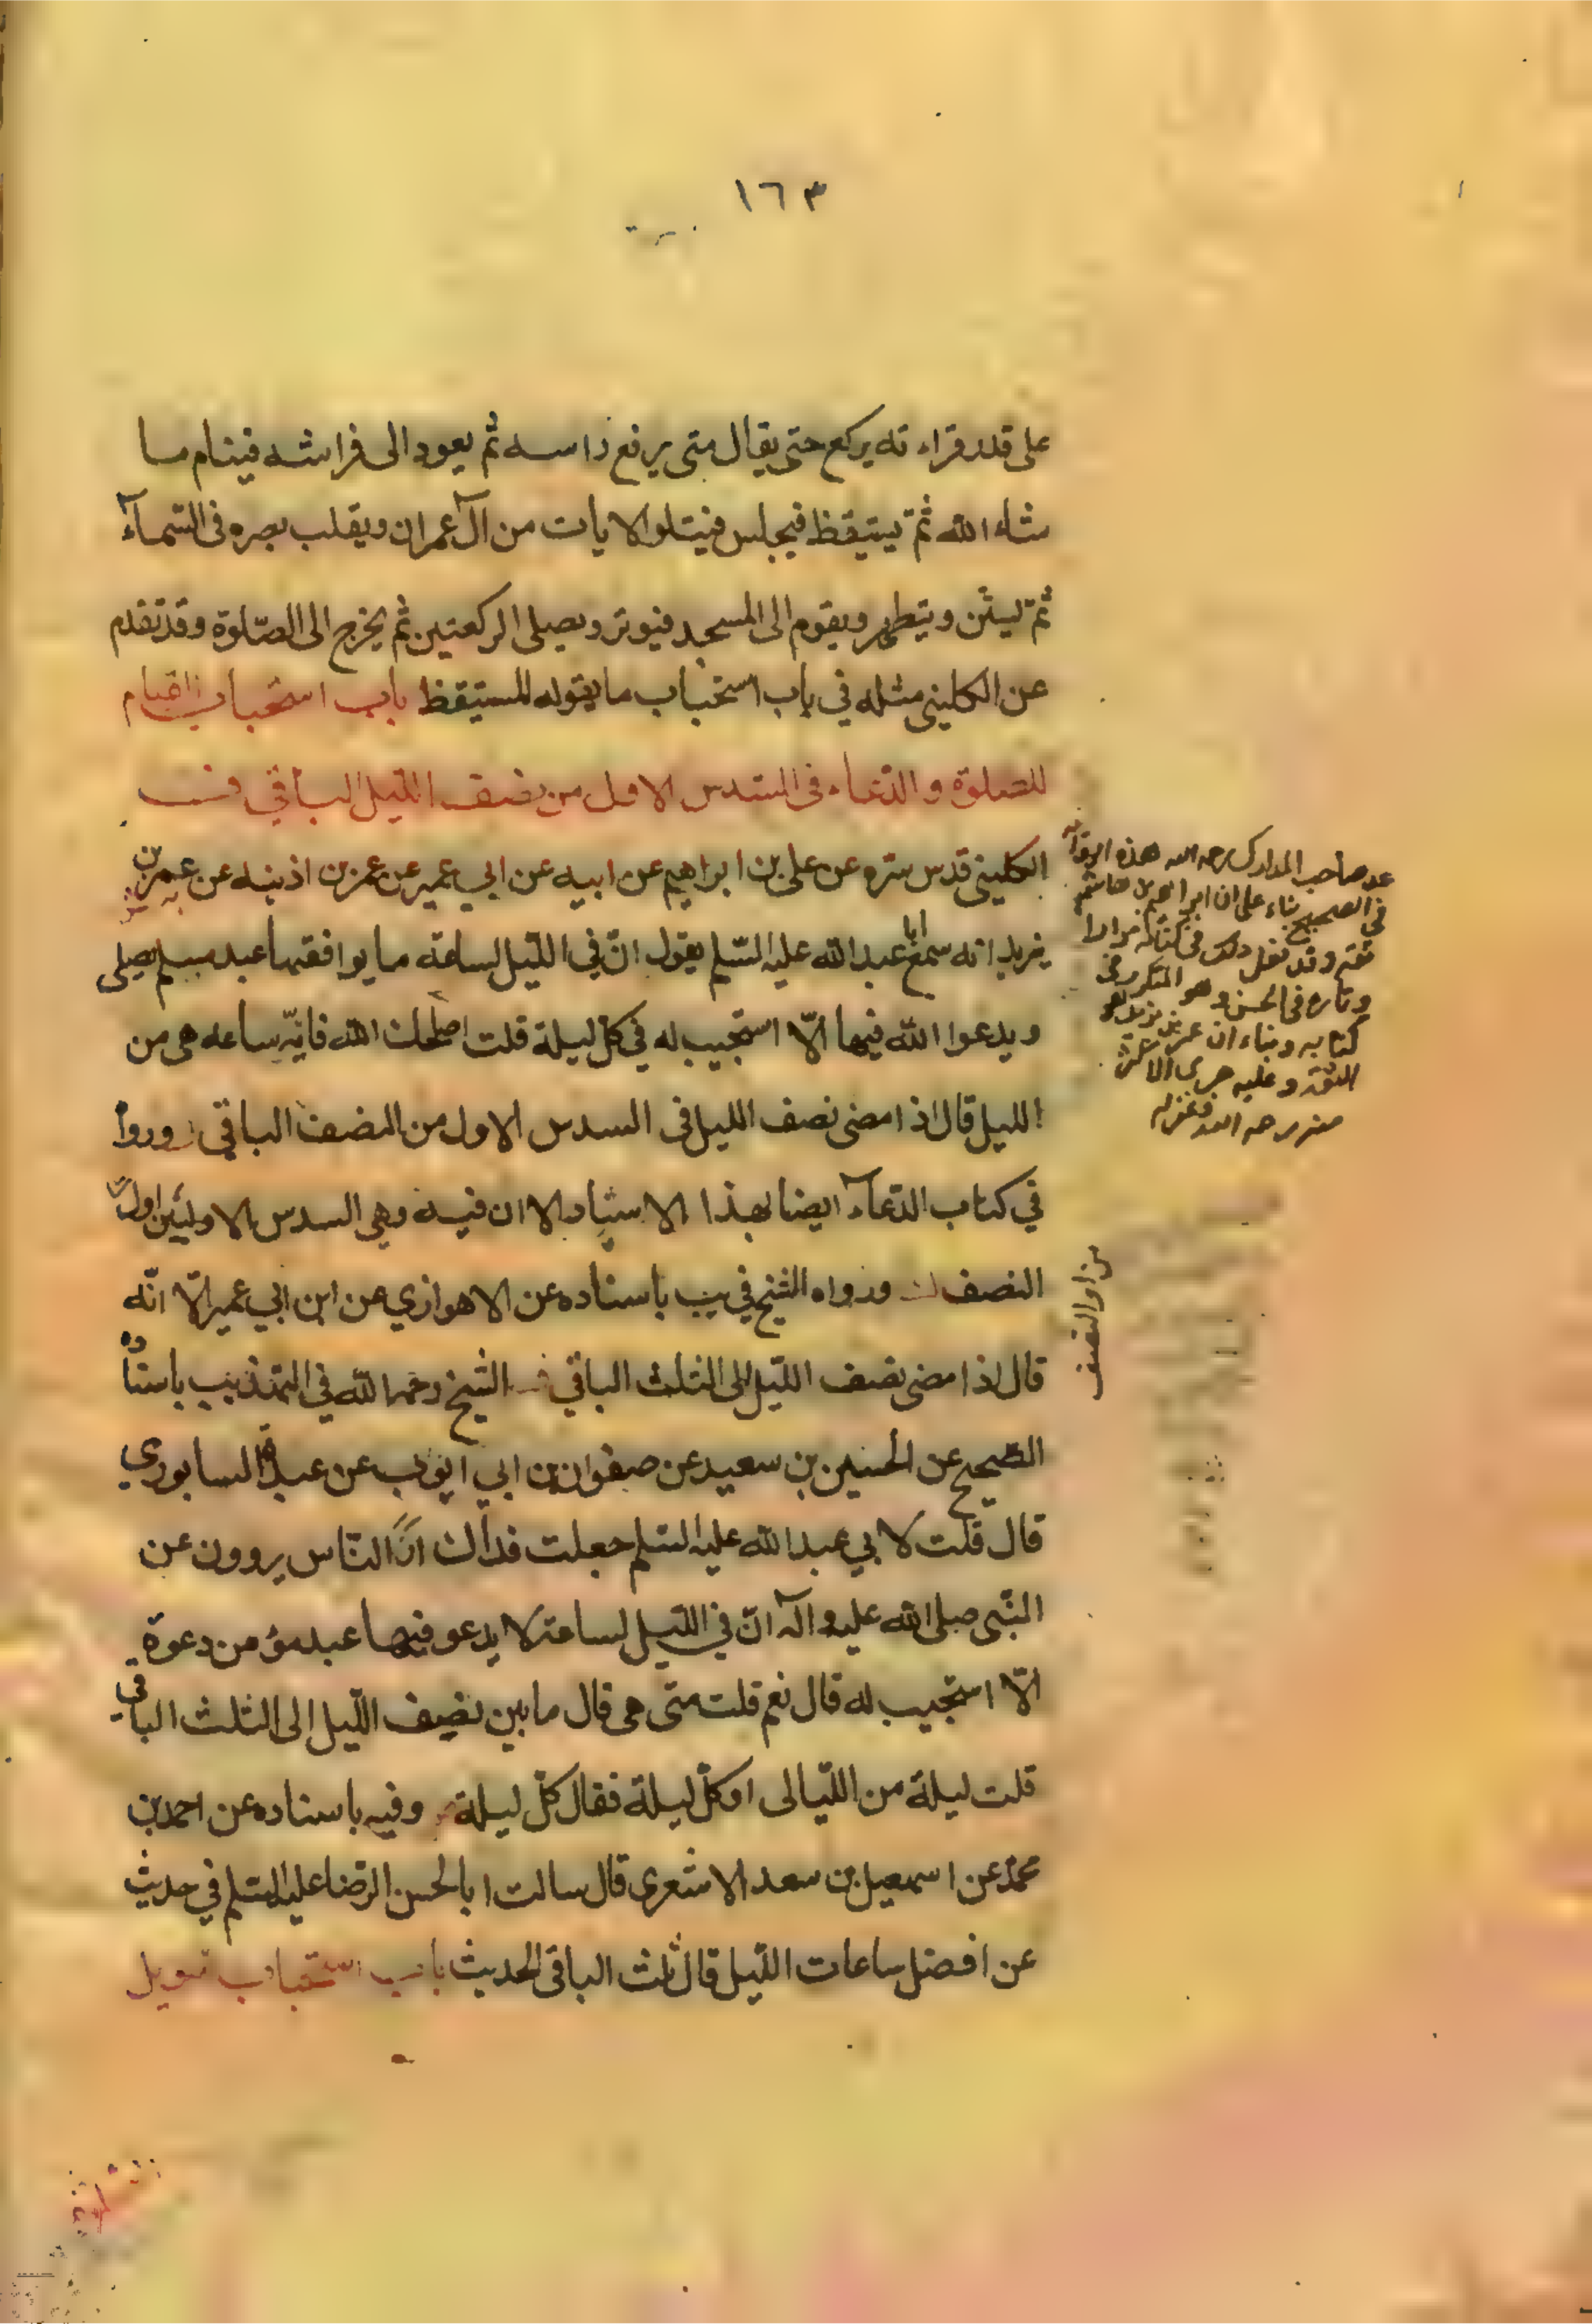 ١٦٣
على قدر قراءته يركع حتى يقال متى يرفع راسه ثم يعود الى فراشه فينام ما
شاء الله ثمّ يستيقظ فيجلس فيتلو الايات من آل عمران ويقلب بصره فى السّمآء
ثمّ ليستن ويتطهر ويقوم الى المسجد فيوتر ويصلى الركعتين ثم يخرج الى الصّلوة وقد تقدم
عن الكلينى مثله في باب استحباب ما يقوله المستيقظ باب استحباب القيام
للصلوة والدّعاء فى السّدس الاول من نصف الليل الباقي
الكلينى قدس سّره عن على بن ابراهيم عن ابيه عن ابي عمير عن عمر بن اذينه عن عمر بن
يزيد انه سمع ابا عبد الله عليه السّلم يقول انّ في اللّيل لساعة ما يوافقها عبد مسلم يصلى
ويدعوا الله فيها الّا استجيب له في كلّ ليلة قلت اصلحك الله فايّه ساعه هى من
الليل قال اذا مضى نصف الليل فى السدس الاول من النصف الباقي وروا
في كتاب الدّعآء ايضا بهذا الاسناد الا ان فيه وهي السدس الاول من اول
النصف ورواه الشيخ في يب باسناده عن الاهوازي عن ابن ابي عمير الّا انّه
قال اذا مضى نصف اللّيل الى الثلث الباقي الشّيخ رحمه الله في التهذيب باسناده
الصّحيح عن الحسين بن سعيد عن صفوان بن ابي ايوب عن عبدة السابوري
قال قلت لابي عبد الله عليه السّلم جعلت فداك انّ النّاس يروون عن
النّبى صلى الله عليه وآله انّ في اللّيل لساعة لا يدعو فيها عبد مؤمن دعوة
الّا استجيب له قال نعم قلت متى هى قال ما بين نصف اللّيل الى الثلث الباقي
قلت ليلة من اللّيالى او كلّ ليلة فقال كلّ ليلة وفيه باسناده عن احمد بن
محمّد عن اسمعيل بن سعد الاشعرى قال سالت ابا الحسن الرّضا عليه السّلم في حديث
عن افضل ساعات اللّيل قال ثلث الباقى الحديث باب استحباب تحويل
عد صاحب المدارك رحمه الله هذه الرواية
فى الصحيح بناء على ان ابراهيم بن هاشم
ثقة وقد نقل ذلك فى كتابه مرارا
وتارة فى الحسن وهو المتكرر فى
كتابه وبناء ان عمر بن يزيد هو
الثقة وعليه جرى الاكثر
منه رحمه الله وغفر له
من اول النصف